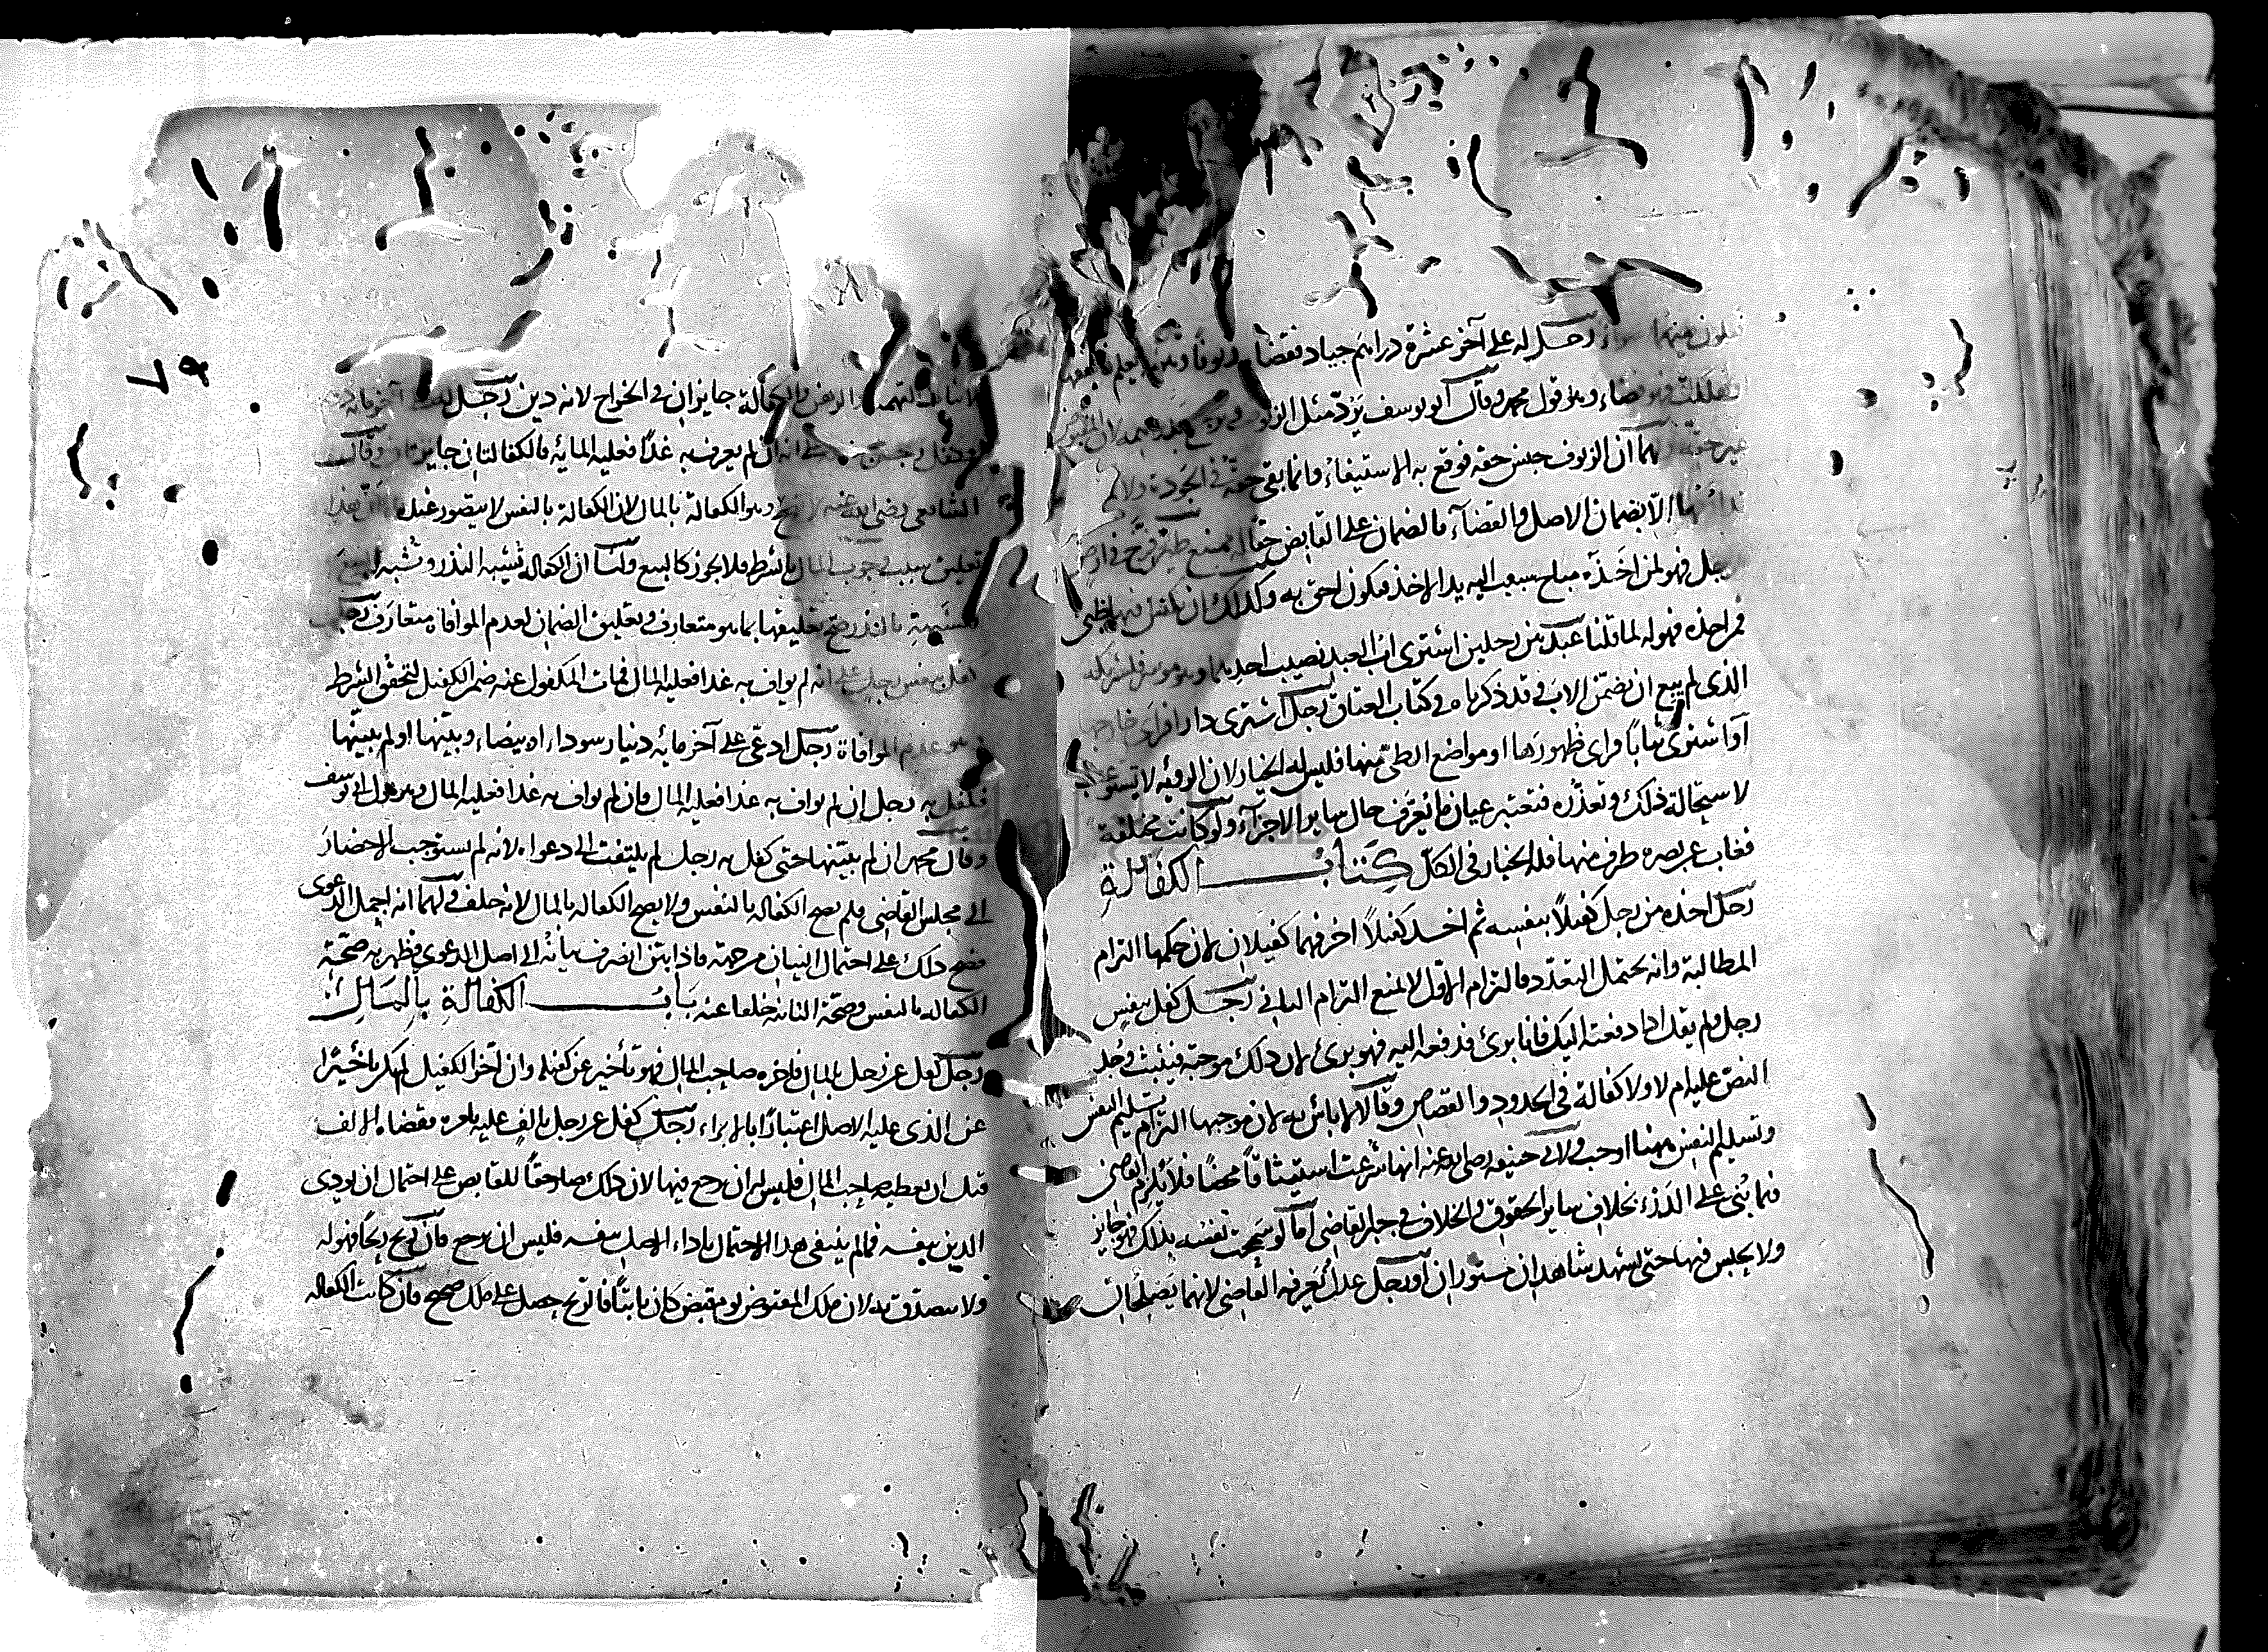 رجل له على آخر عشرة دراهم جياد فقضاه زيوفا وهو لا يعلم فأنفقها
فهو قضاء وهو قول محمد وقال أبو يوسف يرد مثل الزيوف ويرجع بدراهمه لان المقبوض
حقه ولهما ان الزيوف جنس حقه فوقع به الاستيفاء وانما بقي حقه في الجودة ولا
الا بضمان الاصل والقضاء بالضمان على القابض حقا له ممتنع طير فرخ في ارض
رجل فهو لمن اخذه مباح سبقت اليه يد الاخذ فيكون احق به وكذلك ان باض فيها ظبي
فمن اخذه فهو له لما قلنا عبد بين رجلين اشترى اب العبد نصيب احدهما وهو موسر فلشريكه
الذي لم يبع ان يضمن الاب وقد ذكرناه في كتاب العتاق رجل اشترى دارا فرأى خارجها
أو اشترى ثيابا فرأى ظهورها او مواضع الطي منها فليس له الخيار لان الرؤية لا تستوعب
لاستحالة ذلك وتعذره فتعتبر عيان ما يعرف حال سائر الاجزاء ولو كانت مختلفة
فغاب عن بصره طرف منها فله الخيار في الكل كتاب الكفالة
رجل اخذ من رجل كفيلا بنفسه ثم اخذ كفيلا اخر فهما كفيلان لان حكمها التزام
المطالبة وانه يحتمل التعدد فالتزام الاول لا يمنع التزام الثاني رجل كفل بنفس
رجل ولم يقل اذا دفعته اليك فانا بريء فدفعه اليه فهو بريء لان ذلك موجبه فيثبت وجد
النص عليه ام لا ولا كفالة في الحدود والقصاص وقالا لا باس به لان موجبها التزام تسليم النفس
وتسليم النفس ههنا اوجب ولابي حنيفة رضي الله عنه انها شرعت استيثاقا محضا فلا يلزم القاضي
فيما بني على الدرء بخلاف سائر الحقوق والخلاف في جبر القاضي اما لو سمحت نفسه بذلك فهو جايز
ولا يحبس فيها حتى يشهد شاهدان مستوران او رجل عدل يعرفه القاضي لانهما يصلحان
٧٩
التهمة الرهن والكفالة جايزان في الخراج لانه دين رجل
رجل على انه ان لم يعرف به غدا فعليه الماية فالكفالتان جايزتان وقال
الشافعي رضي الله عنه لا تصح وهو الكفالة بالمال لان الكفالة بالنفس لا يتصور عنده
تعليق سبب وجوب المال بالشرط فلا يجوز كالبيع ولنا ان الكفالة تشبه النذر وتشبه البيع
بالنذر صح تعليقها بما هو متعارف وتعليق الضمان لعدم الموافاة متعارف رجل
كفل بنفس رجل على انه ان لم يواف به غدا فعليه المال فمات المكفول عنه ضمن الكفيل لتحقق الشرط
وهو عدم الموافاة رجل ادعى على آخر مائة دينار سوداء او بيضاء وبينها او لم يبينها
فكفل به رجل ان لم يواف به غدا فعليه المال فان لم يواف به غدا فعليه المال وهو قول ابي يوسف
وقال محمد ان لم يبينها حتى كفل به رجل لم يلتفت الى دعواه لانه لم يستوجب الاحضار
الى مجلس القاضي فلم يصح الكفالة بالنفس ولا يصح الكفالة بالمال لانه خلف ولهما انه اجمل الدعوى
فصح ذلك على احتمال البيان من جهته فاذا بين انصرف بيانه الى اصل الدعوى فظهر به صحة
الكفالة بالنفس وصحة الثانية خلفا عنه باب الكفالة بالمال
رجل كفل عن رجل بالمال فاخره صاحب المال فهو تأخير عن كفيله وان اخر الكفيل لم يكن تأخيرا
عن الذي عليه الاصل اعتبارا بالابراء رجل كفل عن رجل بالف عليه بامره فقضاه الالف
قبل ان يعطيه صاحب المال فليس له ان يرجع فيها لان ذلك صار حقا للقابض على احتمال ان يؤدي
الدين بنفسه فما لم ينتفي هذا الاحتمال باداء الاصيل بنفسه فليس ان يرجع فان ربح ربحا فهو له
ولا يتصدق به لان ملك المقبوض يوم قبض كان ثابتا فالربح حصل على ملك صحيح فان كانت الكفالة